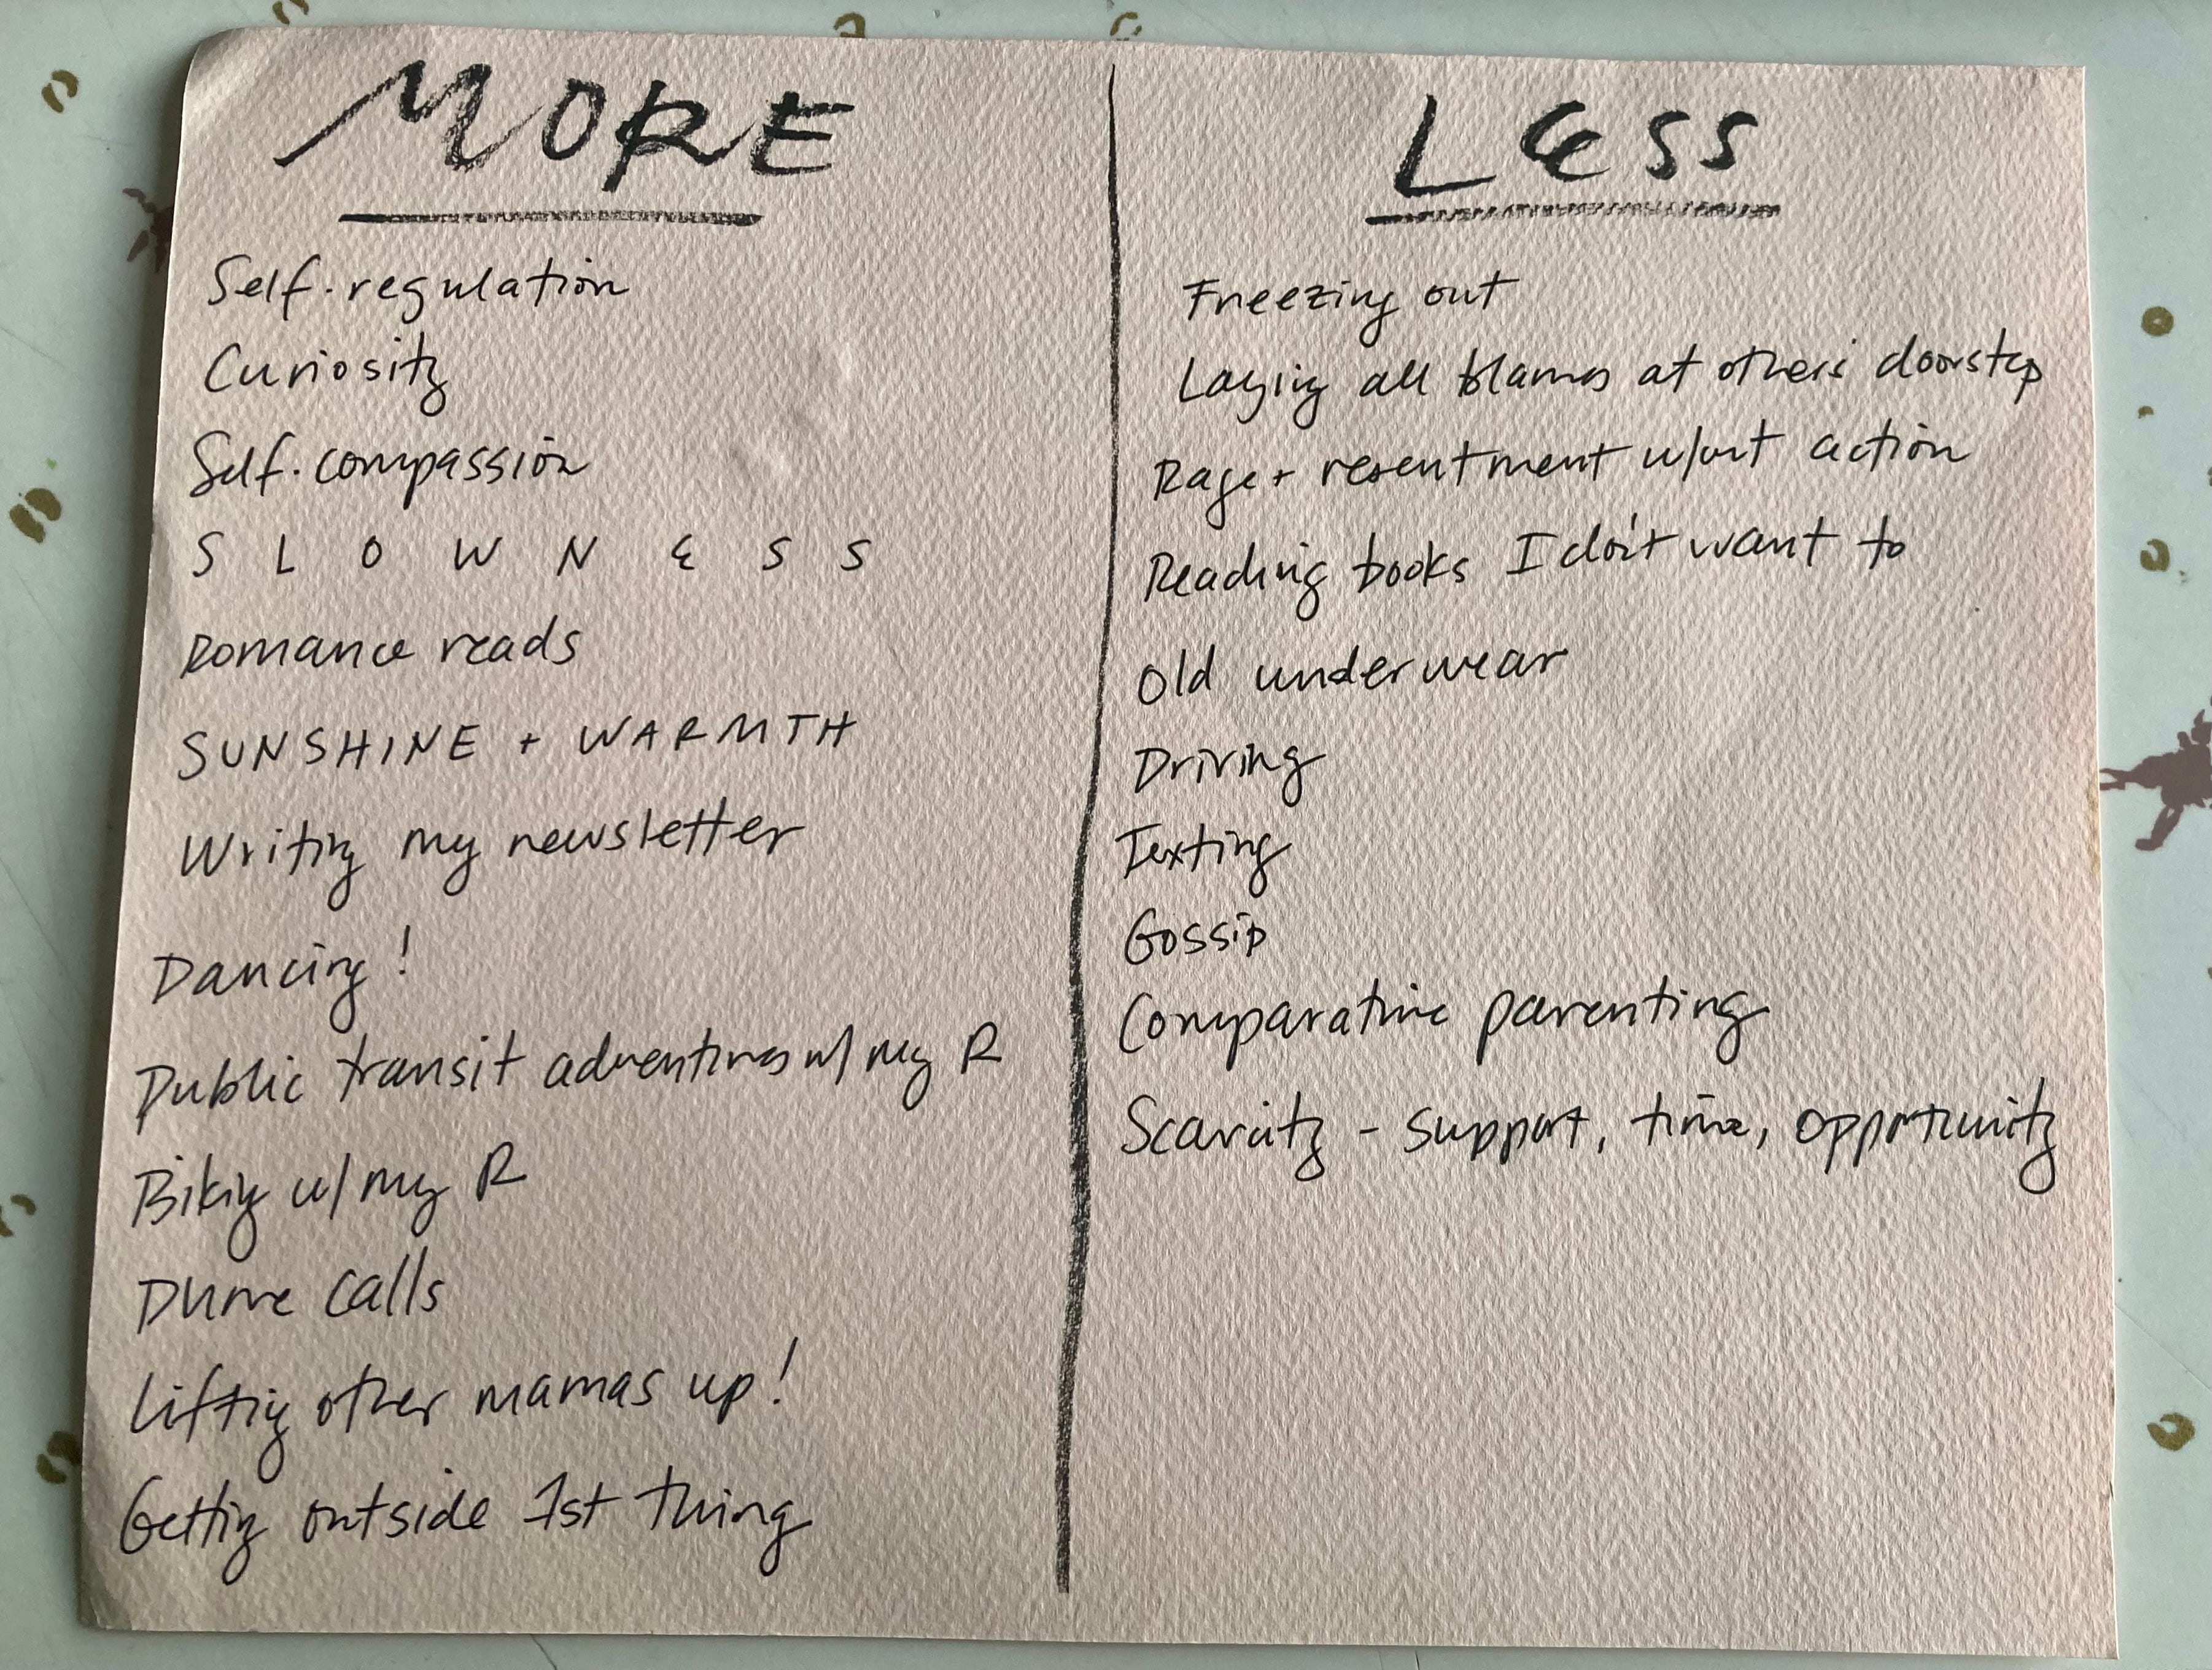 MORE
Self-regulation
Curiosity
Self-compassion
SLOWNESS
Romance reads
SUNSHINE + WARMTH
Writing my newsletter
Dancing!
Public transit adventures w/ my R
Biking w/ my R
Phone calls
Lifting other mamas up!
Getting outside 1st thing
LESS
Freezing out
Laying all blames at others' doorstep
Rage + resentment w/out action
Reading books I don't want to
Old underwear
Driving
Texting
Gossip
Comparative parenting
Scarcity - support, time, opportunity